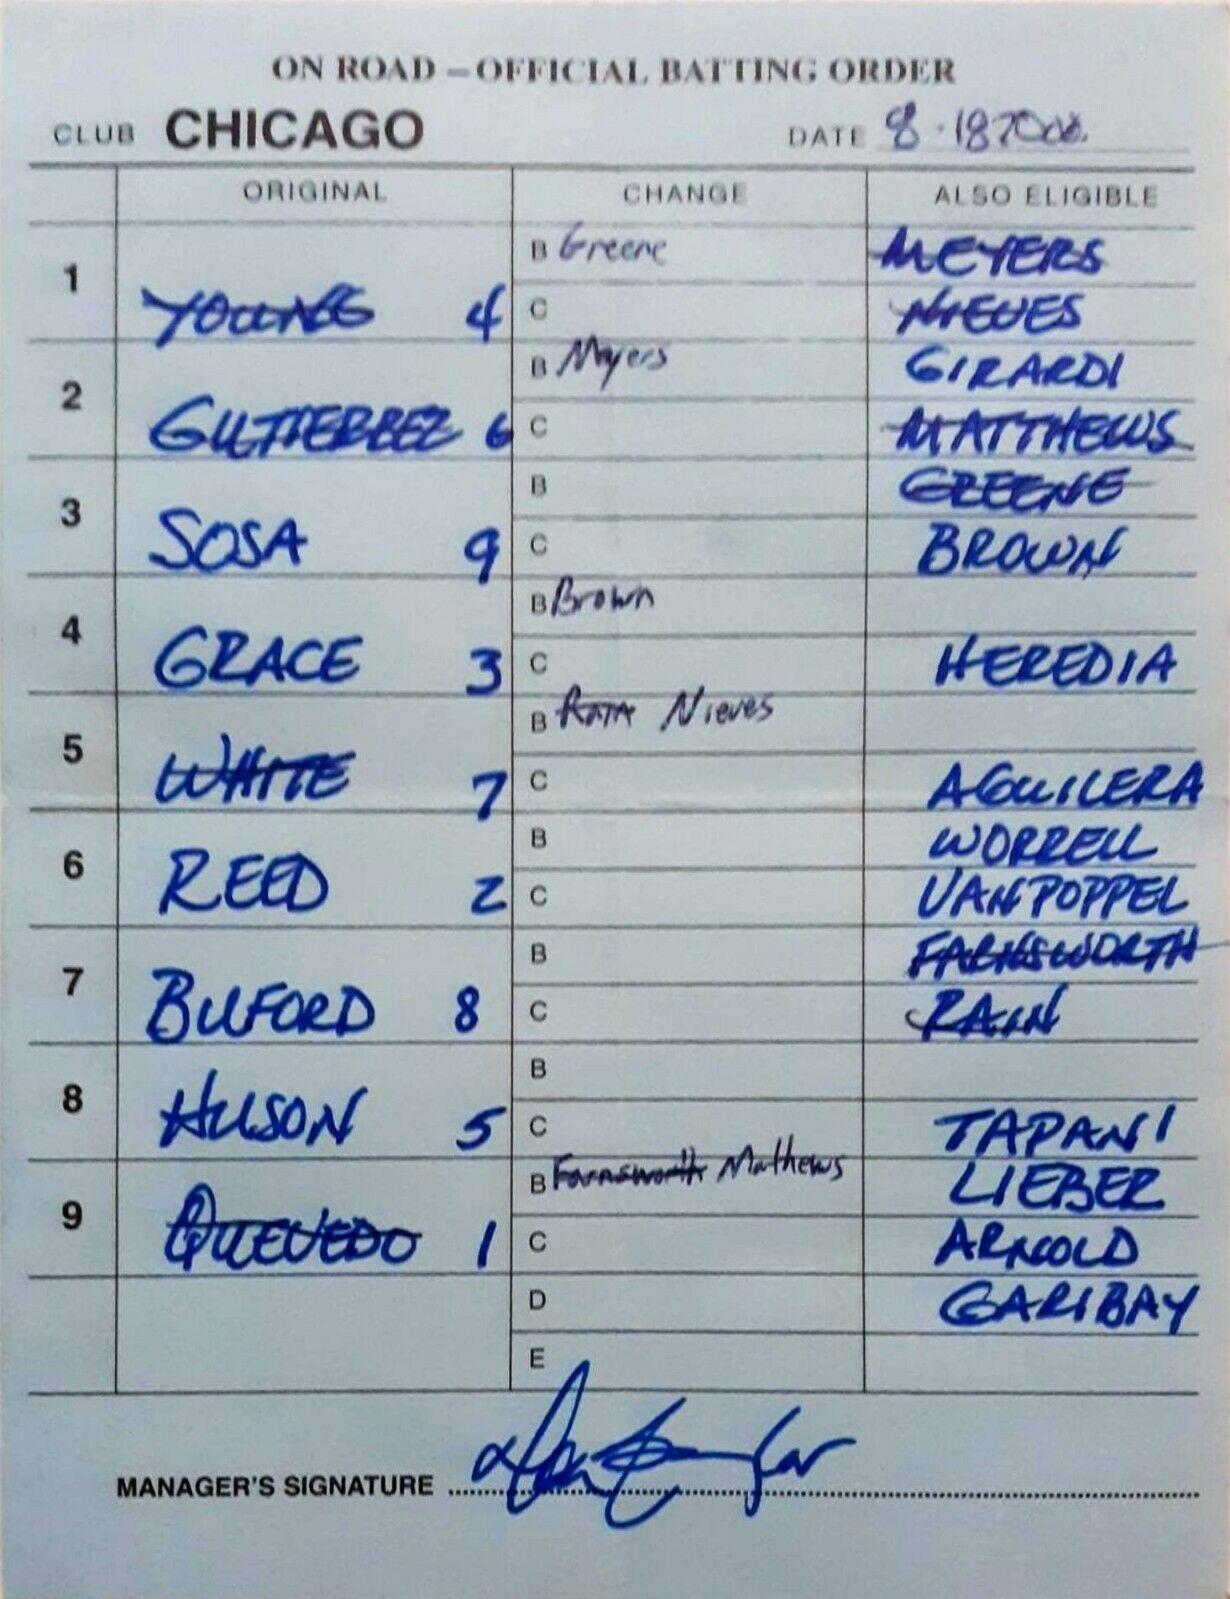 ON ROAD – OFFICIAL BATTING ORDER
CLUB CHICAGO DATE 8·18 2000
ORIGINAL CHANGE ALSO ELIGIBLE
1 YOUNG 4 B Greene MEYERS
C NIEVES
2 GUTIERREZ 6 B Meyers GIRARDI
C MATTHEWS
3 SOSA 9 B GREENE
C BROWN
4 GRACE 3 B Brown
C HEREDIA
5 WHITE 7 B Rain Nieves
C AGUILERA
6 REED 2 B WORRELL
C VAN POPPEL
7 BUFORD 8 B FARNSWORTH
C RAIN
8 HUSON 5 B
C TAPANI
9 QUEVEDO 1 B Farnsworth Mathews LIEBER
C ARNOLD
D GARIBAY
E
MANAGER'S SIGNATURE